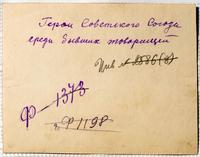 Герои Советского Союза
среди бывших товарищей
Инв № 2586(8)
Ф-1373
Ф 1198